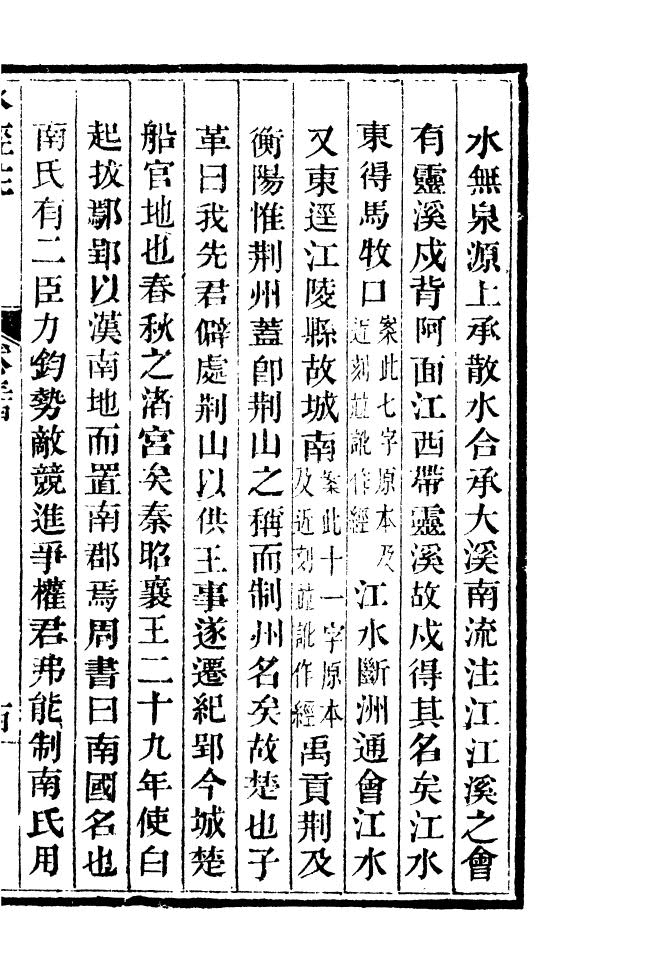 水無泉源上承散水合承大溪南流注江江溪之會
有靈溪戍背阿面江西帶靈溪故戍得其名矣江水
東得馬牧口案此七字原本及近刻並訛作經江水斷洲通會江水
又東逕江陵縣故城南案此十一字原本及近刻並訛作經禹貢荆及
衡陽惟荆州蓋卽荆山之稱而制州名矣故楚也子
革曰我先君僻處荆山以供王事遂遷紀郢今城楚
船官地也春秋之渚宮矣秦昭襄王二十九年使白
起拔鄢郢以漢南地而置南郡焉周書曰南國名也
南氏有二臣力鈞勢敵競進爭權君弗能制南氏用
水經注